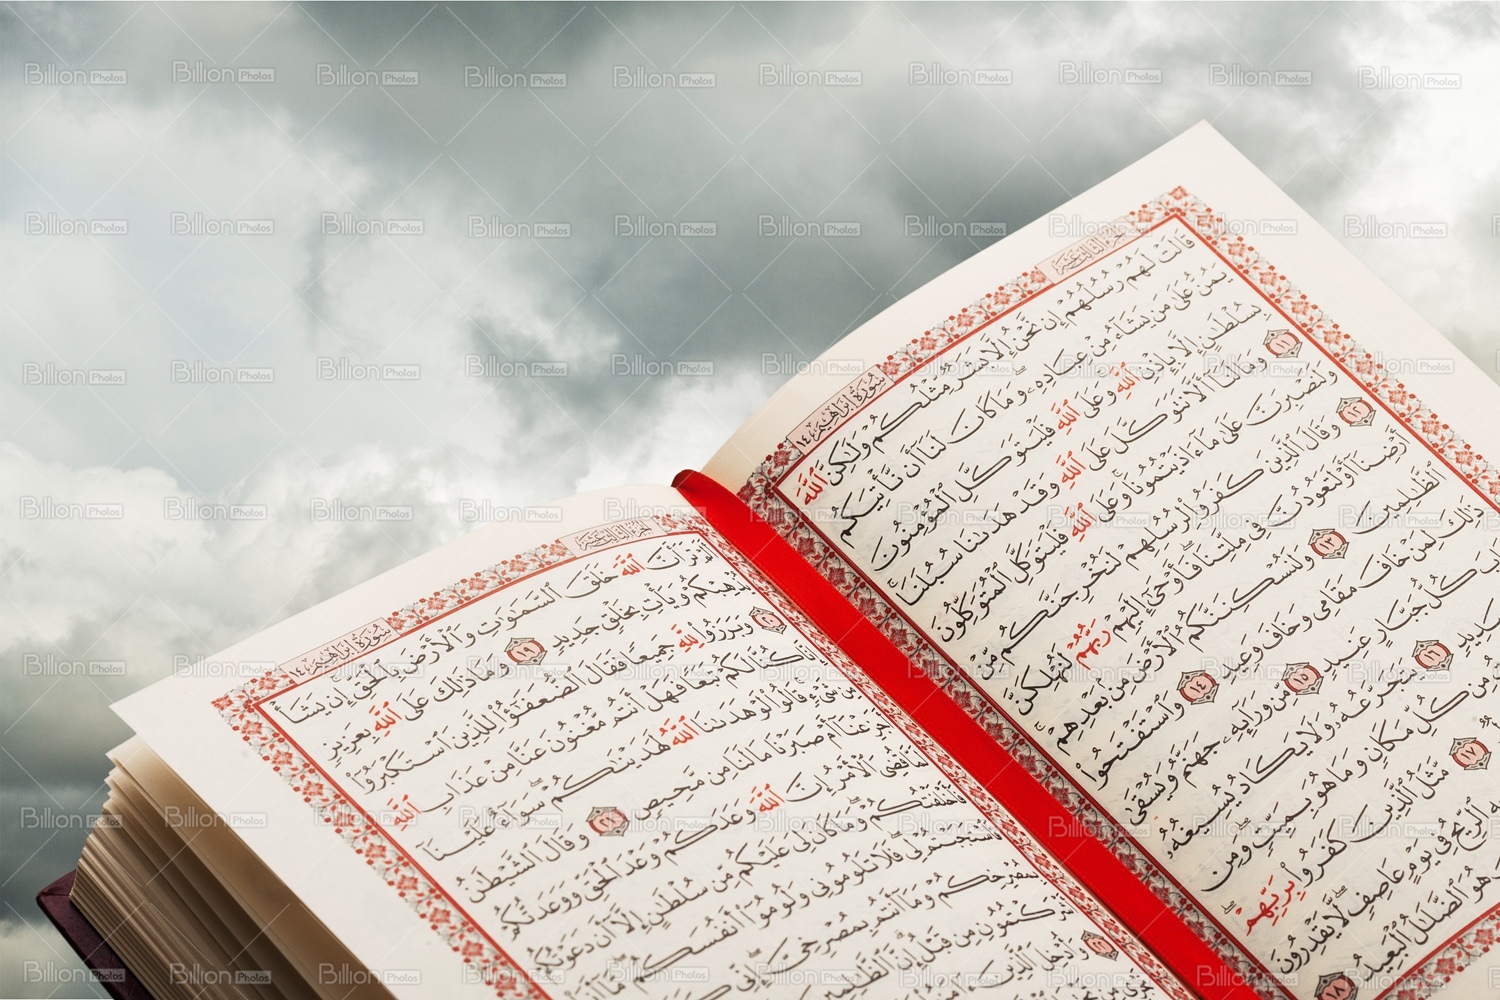 الجزء الثالث عشر
سورة إبراهيم ١٤
قَالَتْ لَهُمْ رُسُلُهُمْ إِن نَّحْنُ إِلَّا بَشَرٌ مِّثْلُكُمْ وَلَٰكِنَّ ٱللَّهَ
يَمُنُّ عَلَىٰ مَن يَشَآءُ مِنْ عِبَادِهِۦ وَمَا كَانَ لَنَآ أَن نَّأْتِيَكُم
بِسُلْطَٰنٍ إِلَّا بِإِذْنِ ٱللَّهِ وَعَلَى ٱللَّهِ فَلْيَتَوَكَّلِ ٱلْمُؤْمِنُونَ
١١ وَمَا لَنَآ أَلَّا نَتَوَكَّلَ عَلَى ٱللَّهِ وَقَدْ هَدَىٰنَا سُبُلَنَا
وَلَنَصْبِرَنَّ عَلَىٰ مَآ ءَاذَيْتُمُونَا وَعَلَى ٱللَّهِ فَلْيَتَوَكَّلِ ٱلْمُتَوَكِّلُونَ
١٢ وَقَالَ ٱلَّذِينَ كَفَرُوا۟ لِرُسُلِهِمْ لَنُخْرِجَنَّكُم مِّنْ
أَرْضِنَآ أَوْ لَتَعُودُنَّ فِى مِلَّتِنَا فَأَوْحَىٰٓ إِلَيْهِمْ رَبُّهُمْ لَنُهْلِكَنَّ
ٱلظَّٰلِمِينَ ١٣ وَلَنُسْكِنَنَّكُمُ ٱلْأَرْضَ مِنۢ بَعْدِهِمْ
ذَٰلِكَ لِمَنْ خَافَ مَقَامِى وَخَافَ وَعِيدِ ١٤ وَٱسْتَفْتَحُوا۟
كُلُّ جَبَّارٍ عَنِيدٍ ١٥ مِّن وَرَآئِهِۦ جَهَنَّمُ وَيُسْقَىٰ
صَدِيدٍ ١٦ يَتَجَرَّعُهُۥ وَلَا يَكَادُ يُسِيغُهُۥ
مِن كُلِّ مَكَانٍ وَمَا هُوَ بِمَيِّتٍ وَمِن
١٧ مَّثَلُ ٱلَّذِينَ كَفَرُوا۟ بِرَبِّهِمْ
بِهِ ٱلرِّيحُ فِى يَوْمٍ عَاصِفٍ لَّا يَقْدِرُونَ
هُوَ ٱلضَّلَٰلُ ٱلْبَعِيدُ ١٨
الجزء الثالث عشر
سورة إبراهيم ١٤
تَرَ أَنَّ ٱللَّهَ خَلَقَ ٱلسَّمَٰوَٰتِ وَٱلْأَرْضَ بِٱلْحَقِّ إِن يَشَأْ
يُذْهِبْكُمْ وَيَأْتِ بِخَلْقٍ جَدِيدٍ ١٩ وَمَا ذَٰلِكَ عَلَى ٱللَّهِ بِعَزِيزٍ
٢٠ وَبَرَزُوا۟ لِلَّهِ جَمِيعًا فَقَالَ ٱلضُّعَفَٰٓؤُا۟ لِلَّذِينَ ٱسْتَكْبَرُوٓا۟
كُنَّا لَكُمْ تَبَعًا فَهَلْ أَنتُم مُّغْنُونَ عَنَّا مِنْ عَذَابِ ٱللَّهِ
مِن شَىْءٍ قَالُوا۟ لَوْ هَدَىٰنَا ٱللَّهُ لَهَدَيْنَٰكُمْ سَوَآءٌ عَلَيْنَآ
أَجَزِعْنَآ أَمْ صَبَرْنَا مَا لَنَا مِن مَّحِيصٍ ٢١ وَقَالَ ٱلشَّيْطَٰنُ
قُضِىَ ٱلْأَمْرُ إِنَّ ٱللَّهَ وَعَدَكُمْ وَعْدَ ٱلْحَقِّ وَوَعَدتُّكُمْ
فَأَخْلَفْتُكُمْ وَمَا كَانَ لِىَ عَلَيْكُم مِّن سُلْطَٰنٍ إِلَّآ أَن دَعَوْتُكُمْ
فَٱسْتَجَبْتُمْ لِى فَلَا تَلُومُونِى وَلُومُوٓا۟ أَنفُسَكُم مَّآ أَنَا۠
بِمُصْرِخِكُمْ وَمَآ أَنتُم بِمُصْرِخِىَّ إِنِّى كَفَرْتُ
أَشْرَكْتُمُونِ مِن قَبْلُ إِنَّ ٱلظَّٰلِمِينَ
٢٢ وَأُدْخِلَ ٱلَّذِينَ
تَجْرِى
Billion Photos